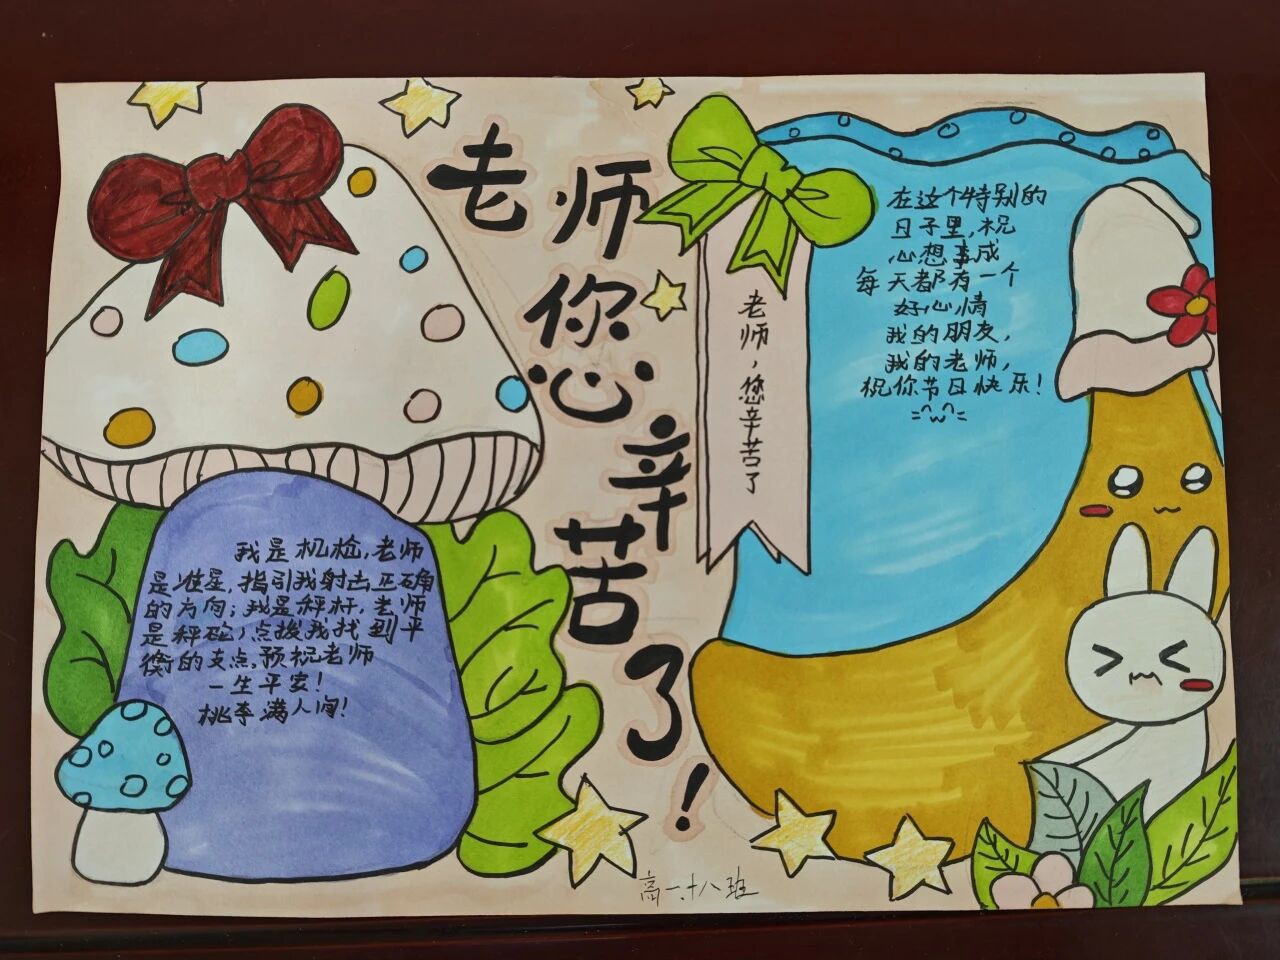 老师您辛苦了！
我是机枪，老师
是准星，指引我射击正确
的方向；我是秤杆，老师
是秤砣，点拨我找到平
衡的支点。预祝老师
一生平安！
桃李满人间！
老师，您辛苦了
在这个特别的
日子里，祝
心想事成
每天都有一个
好心情
我的朋友，
我的老师，
祝你节日快乐！
高一.十八班